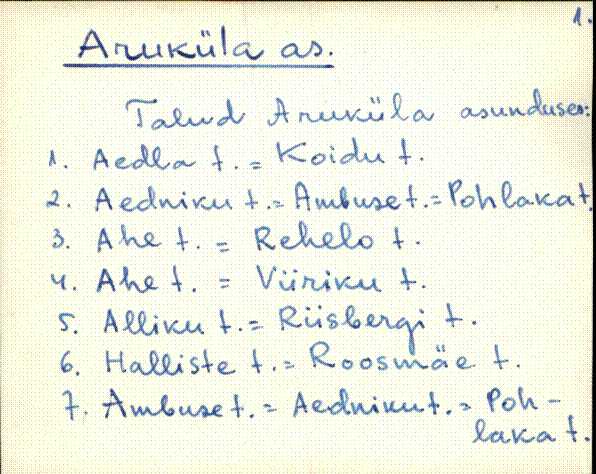 1.
Aruküla as.
Talud Aruküla asunduses:
1. Aedla t. = Koidu t.
2. Aedniku t. = Ambuse t. = Pohlaka t.
3. Ahe t. = Rehelo t.
4. Ahe t. = Viiriku t.
5. Alliku t. = Riisbergi t.
6. Halliste t. = Roosmäe t.
7. Ambuse t. = Aedniku t. = Poh-
laka t.